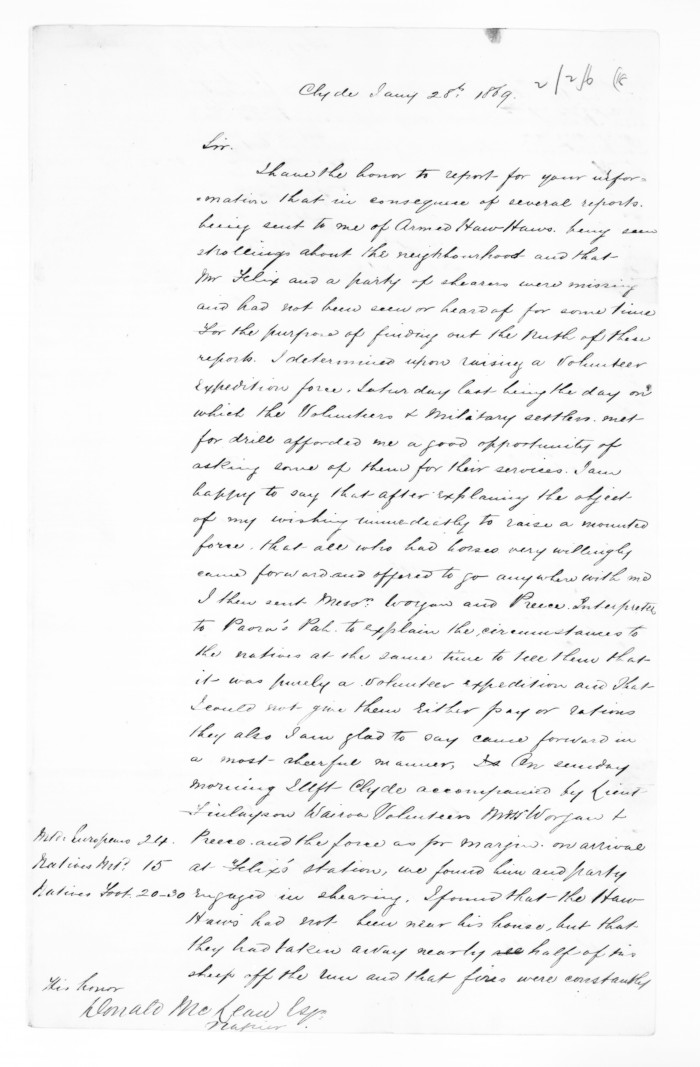 Clyde Jany 28th 1869.
2/2/6
Sir.
I have the honor to report for your infor-
-mation that in consequse of several reports.
being sent to me of Armed Haw Haws. being seen
strollings about the neighbourhood and that
Mr Felix and a party of shearers were missing
and had not been seen or heard of for some time
For the purpose of finding out the truth of these
reports. I determined upon raising a Volunteer
Expedition force. Saturday last being the day on
which the Volunteers & Military settlers. met
for drill afforded me a good opportunity of
asking some of them for their services. I am
happy to say that after explaing the object
of my wishing immediectly to raise a mounted
force. that all who had horses very willingly
came forward and offered to go anywhere with me
I then sent Messrs Worgan and Preece. Interpreter
to Paora's Pah. to explain the circumstances to
the natives at the same time to tell them that
it was purely a volunteer expedition and that
I could not give them either pay or rations
they also I am glad to say came forward in
a most cheerful manner, On sunday
morning I left Clyde accompanied by Lieut
Finlayson Wairoa Volunteers Messrs Worgan &
Preece. and the force as pr margin. on arrival
at Felix's station, we found him and party
engaged in shearing, I found that the Haw
Haws had not been near his house, but that
they had taken away nearly half of his
sheep off the run and that fires were constantly
Mtd. Europeans 24.
Natives Mtd. 15
Natives Foot. 20-30
His honor
Donald McLean Esqr.
Napier